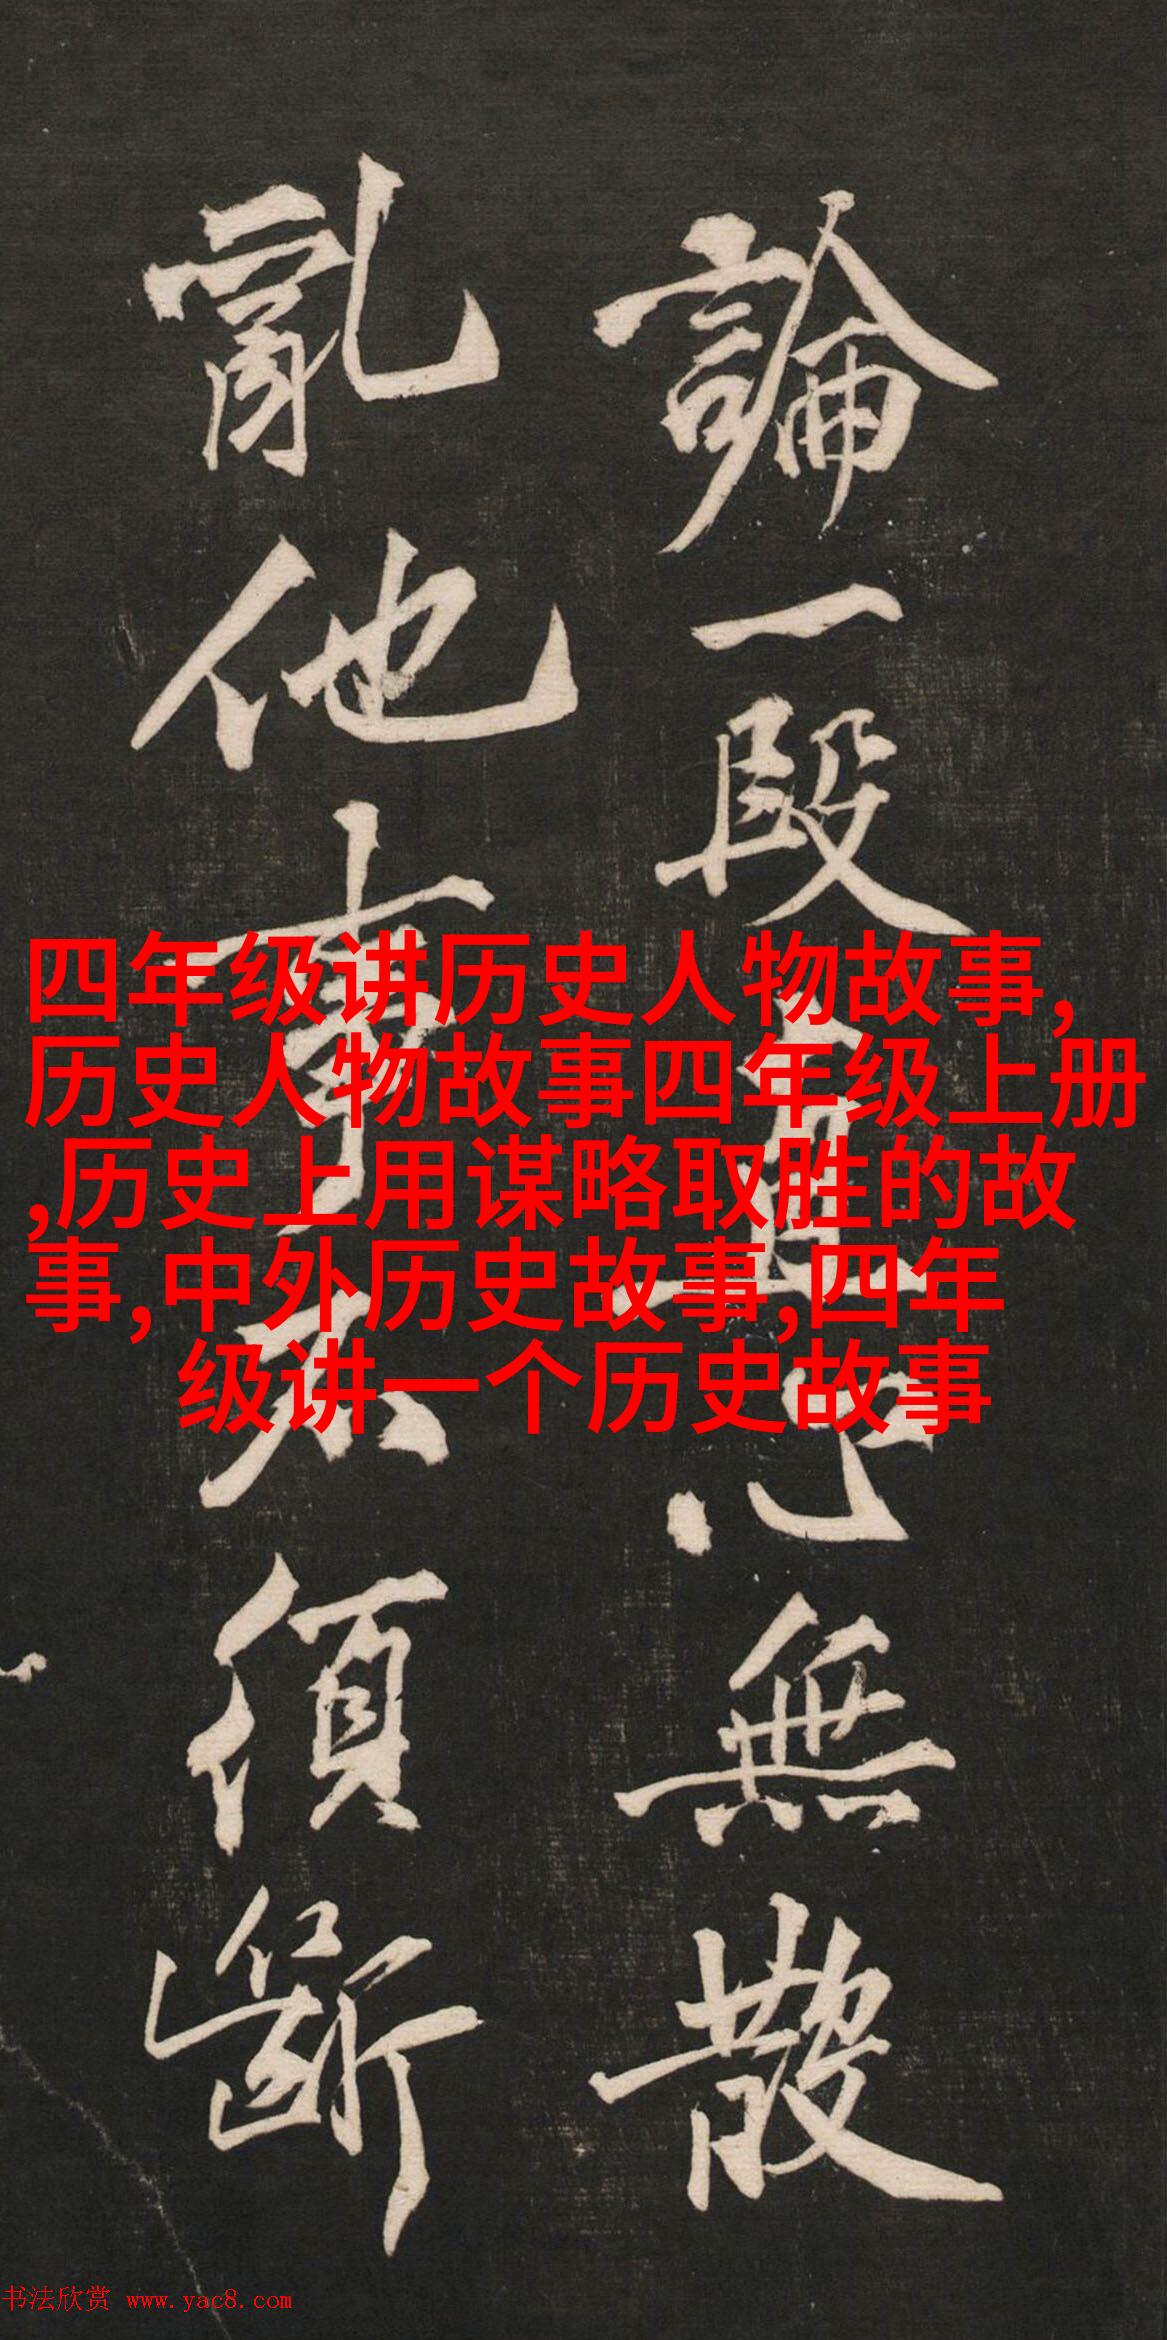 論一段直心無散
亂他事不須斷
四年级讲历史人物故事,
历史人物故事四年级上册
,历史上用谋略取胜的故
事,中外历史故事,四年
级讲一个历史故事
书法欣赏 www.yac8.com